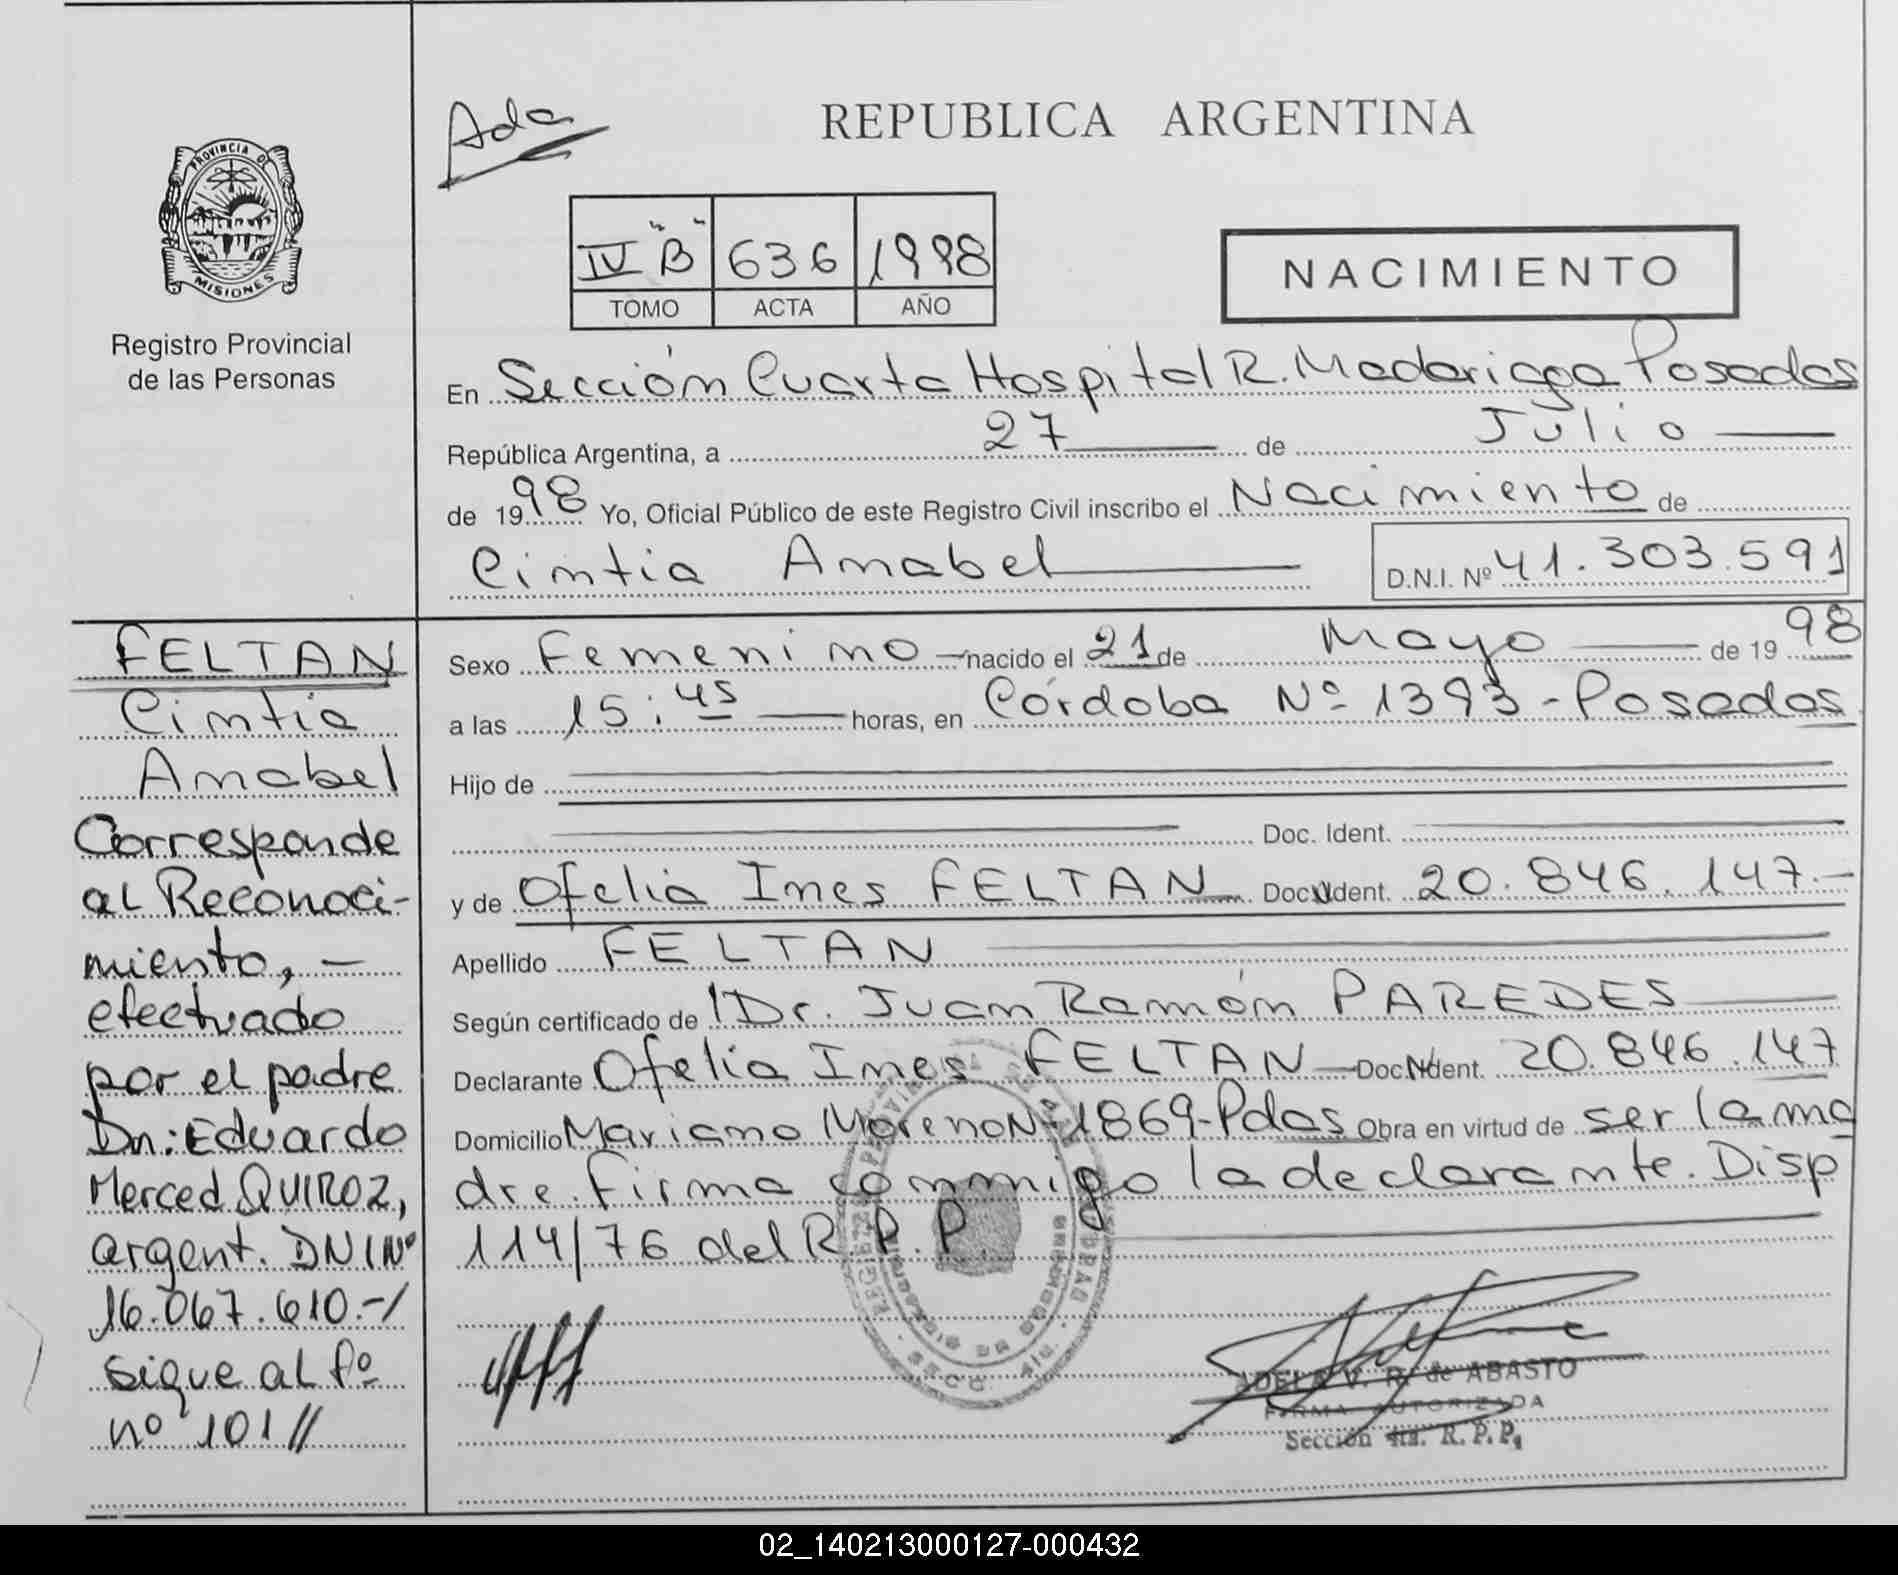 PROVINCIA DE
MISIONES
Registro Provincial
de las Personas
Ada
REPUBLICA ARGENTINA
IV "B" 636 1998
TOMO ACTA AÑO
NACIMIENTO
En Sección Cuarta Hospital R. Madariaga Posadas
República Argentina, a 27 de Julio
de 1998 Yo, Oficial Público de este Registro Civil inscribo el Nacimiento de
Cintia Anabel D.N.I. Nº 41.303.591
FELTAN
Cintia
Anabel
Corresponde
al Reconoci-
miento, -
efectuado
por el padre
Dn: Eduardo
Merced QUIROZ,
argent. DNI Nº
16.067.610.-/
sigue al fº
nº 101//
Sexo Femenino nacido el 21 de Mayo de 1998
a las 15:45 horas, en Córdoba Nº 1393 - Posadas
Hijo de
Doc. Ident.
y de Ofelia Ines FELTAN Doc. Ident. 20.846.147.-
Apellido FELTAN
Según certificado de Dr. Juan Ramón PAREDES
Declarante Ofelia Ines FELTAN Doc. Ident. 20.846.147
Domicilio Mariano Moreno Nº 1869-Pdas Obra en virtud de ser la ma
dre. Firma conmigo la declarante. Disp
114/76 del R.P.P.
ADELA V. R. de ABASTO
FIRMA AUTORIZADA
Sección 4ta. R.P.P.
02_140213000127-000432